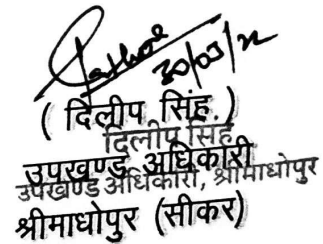 30/03/22
( दिलीप सिंह )
दिलीप सिंह
उपखण्ड अधिकारी
उपखण्ड अधिकारी, श्रीमाधोपुर
श्रीमाधोपुर (सीकर)